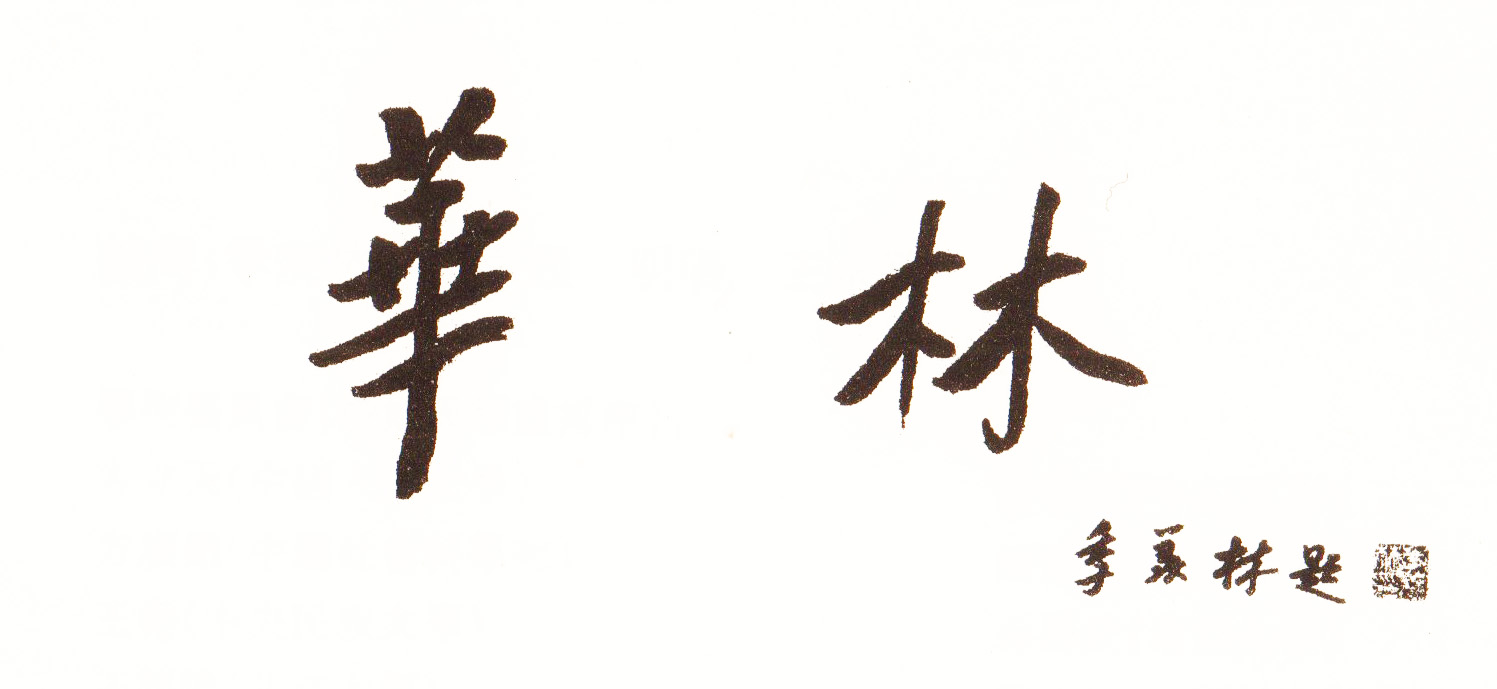 華林
季羡林题